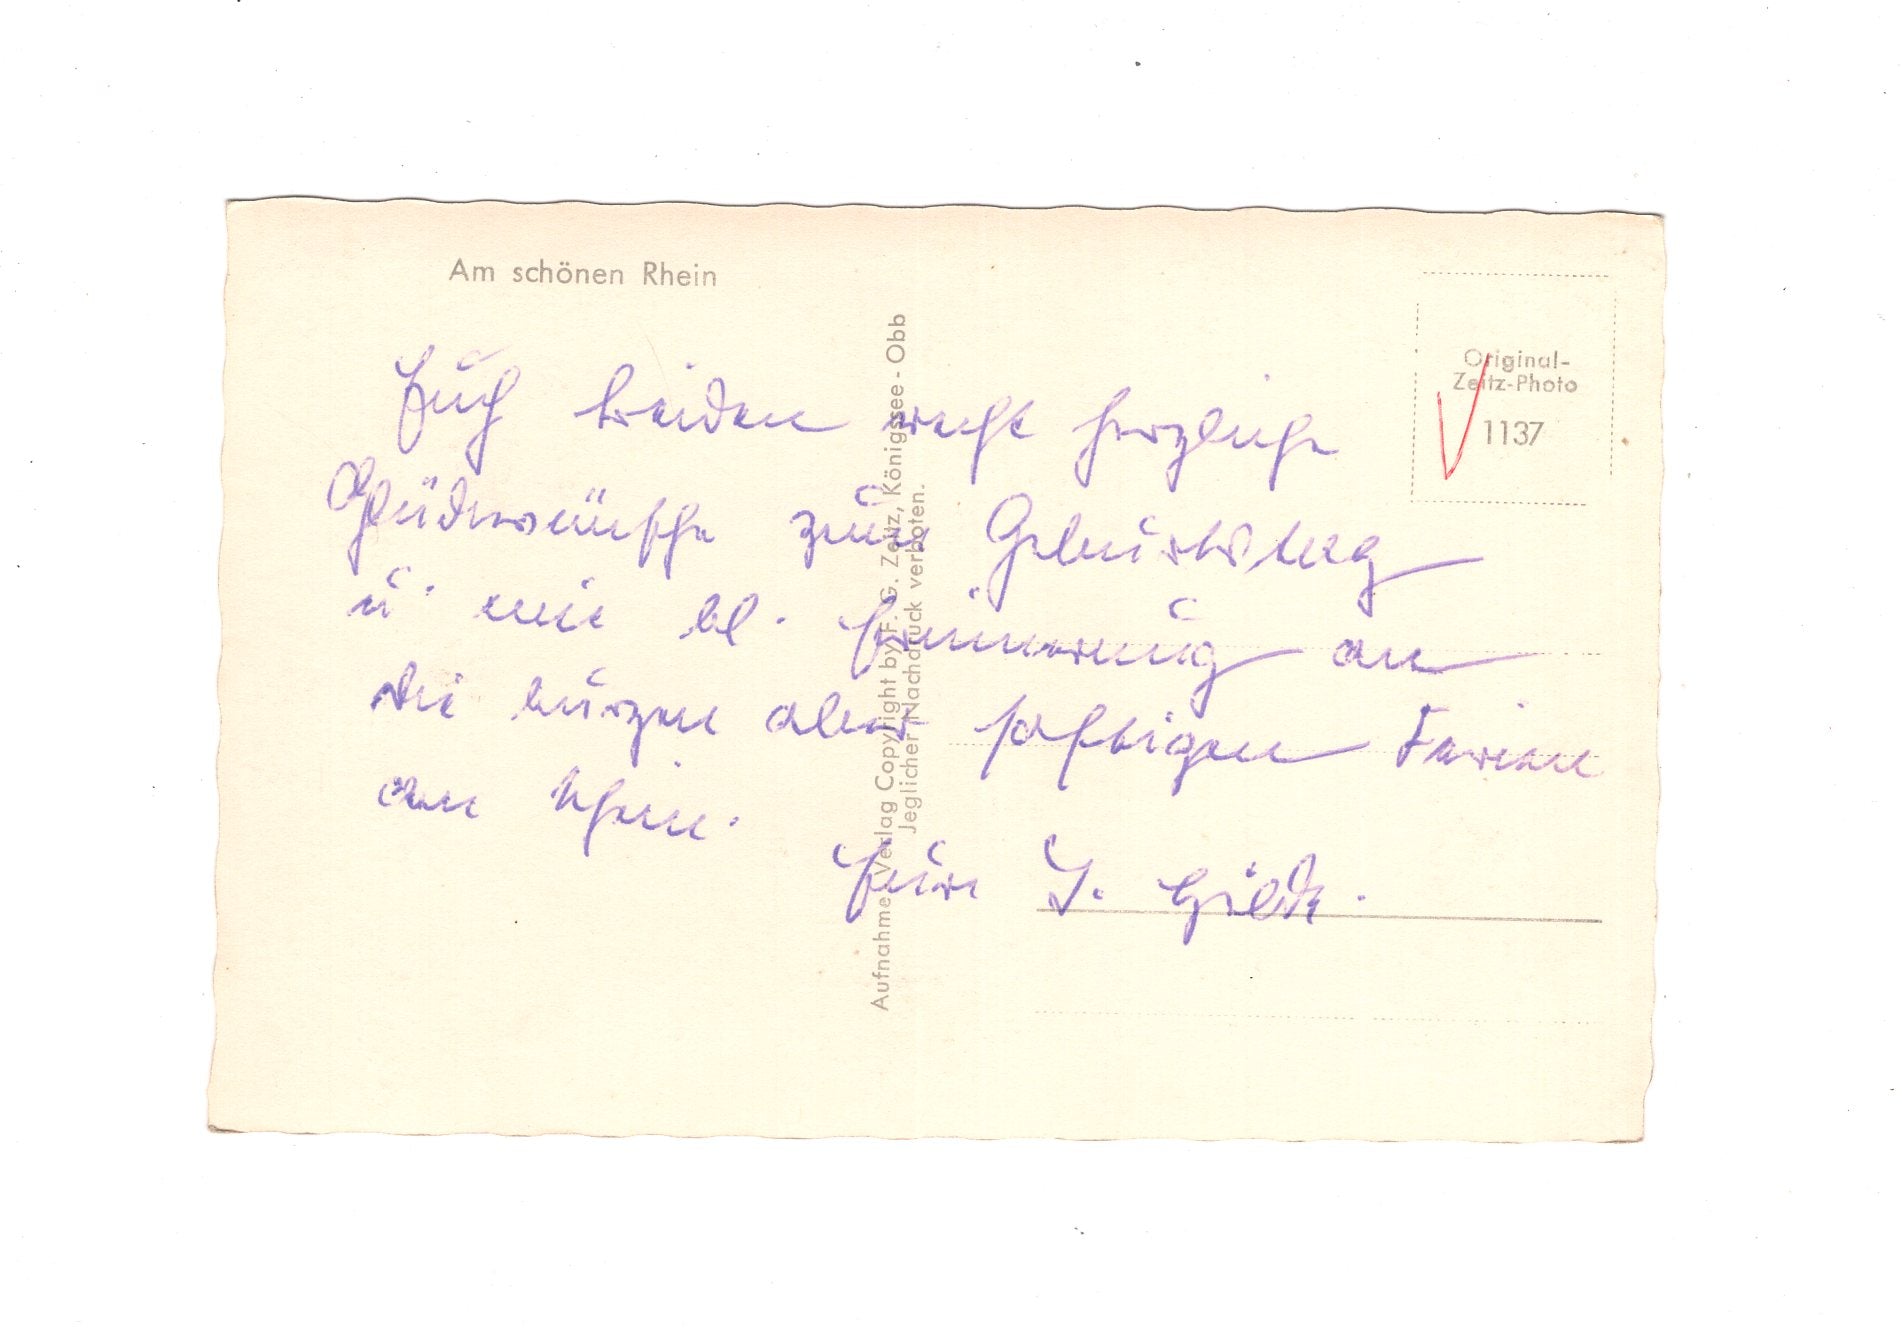 Am schönen Rhein
Original-
Zeitz-Photo
1137
Aufnahme, Verlag Copyright by F. G. Zeitz, Königssee - Obb
Jeglicher Nachdruck verboten.
Euch beiden recht herzliche
Glückwünsche zum Geburtstag
u. eine kl. Erinnerung an
die kurzen aber Ferien
am Rhein.
Eure